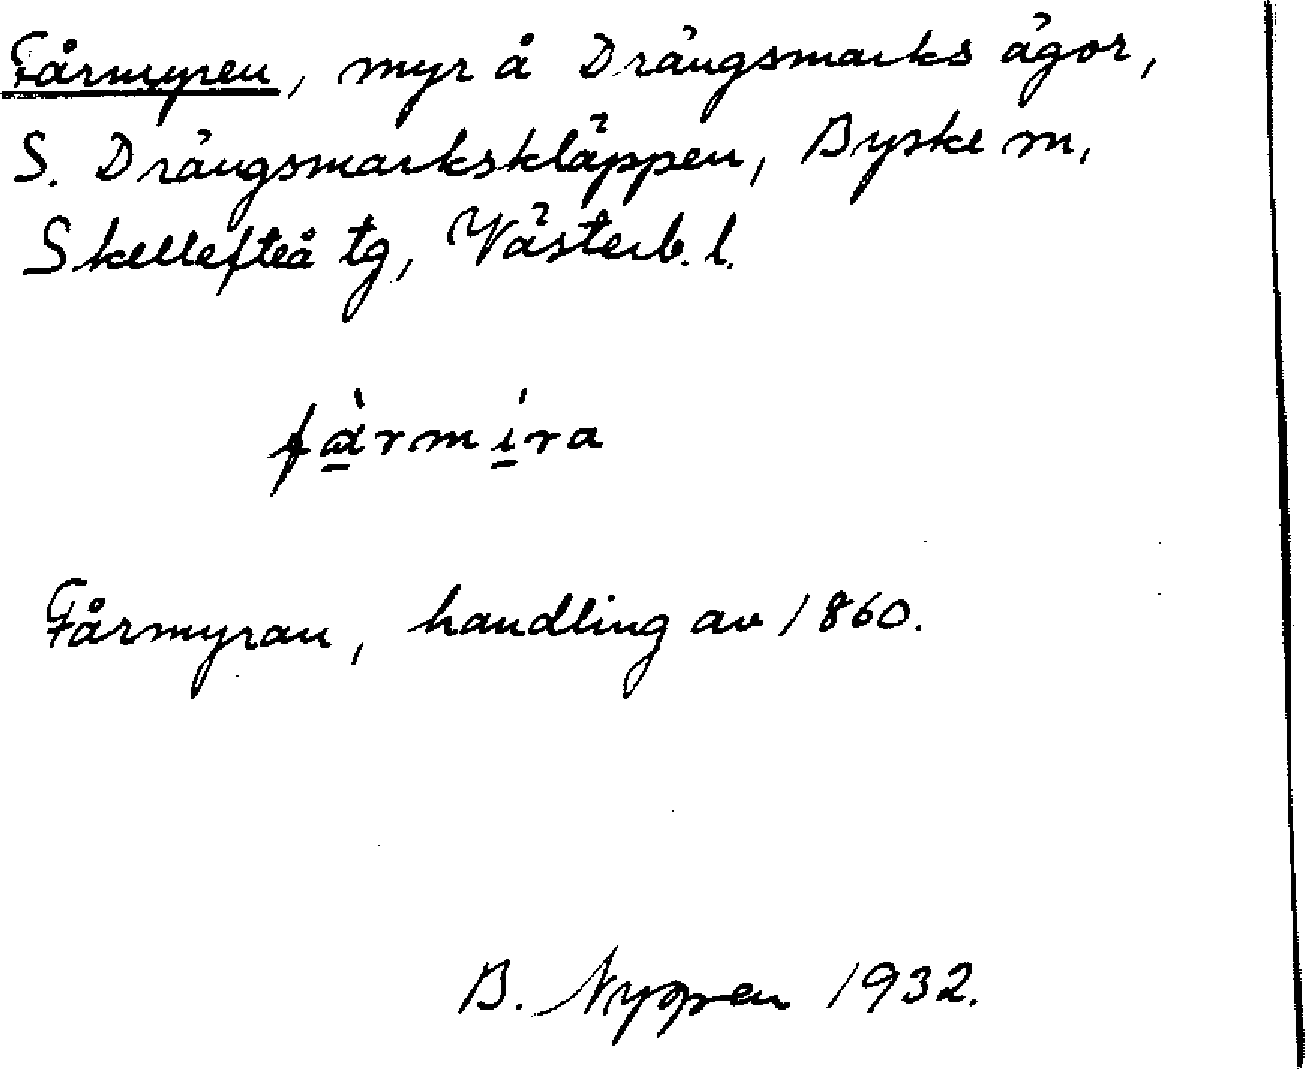 Fårmyren, myr å Drängsmarks ägor,
S. Drängsmarkskläppen, Byske sn,
Skellefteå tg, Västerb. l.
fàrmíra
Fårmyran, handling av 1860.
B. 1932.